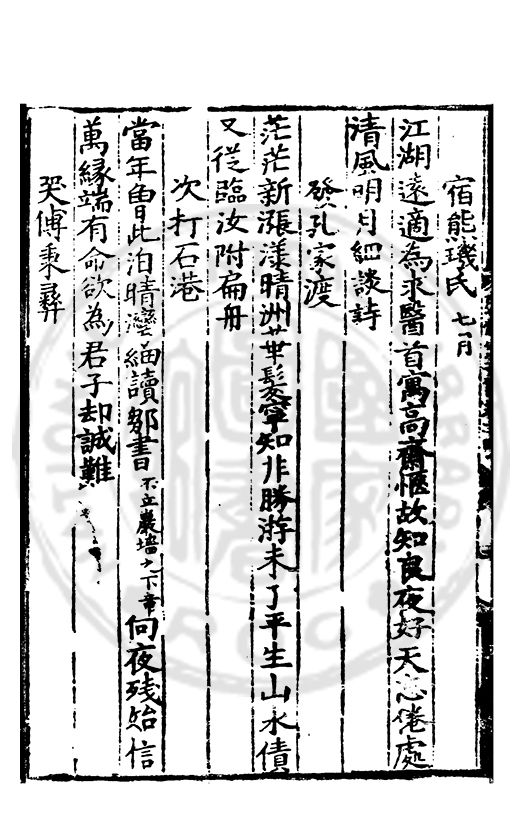 宿熊璣氏 七月
江湖遠適為求醫首寓高齋愜故知良夜好天悲倦處
清風明月細談詩
發孔家渡
茫茫新漲漾晴洲華髮寧知非勝游未了平生山水債
又從臨汝附扁舟
次打石港
當年曾此泊晴灣緬讀鄒書不立巖墻之下章向夜殘始信
萬緣端有命欲為君子却誠難
哭傅秉彛